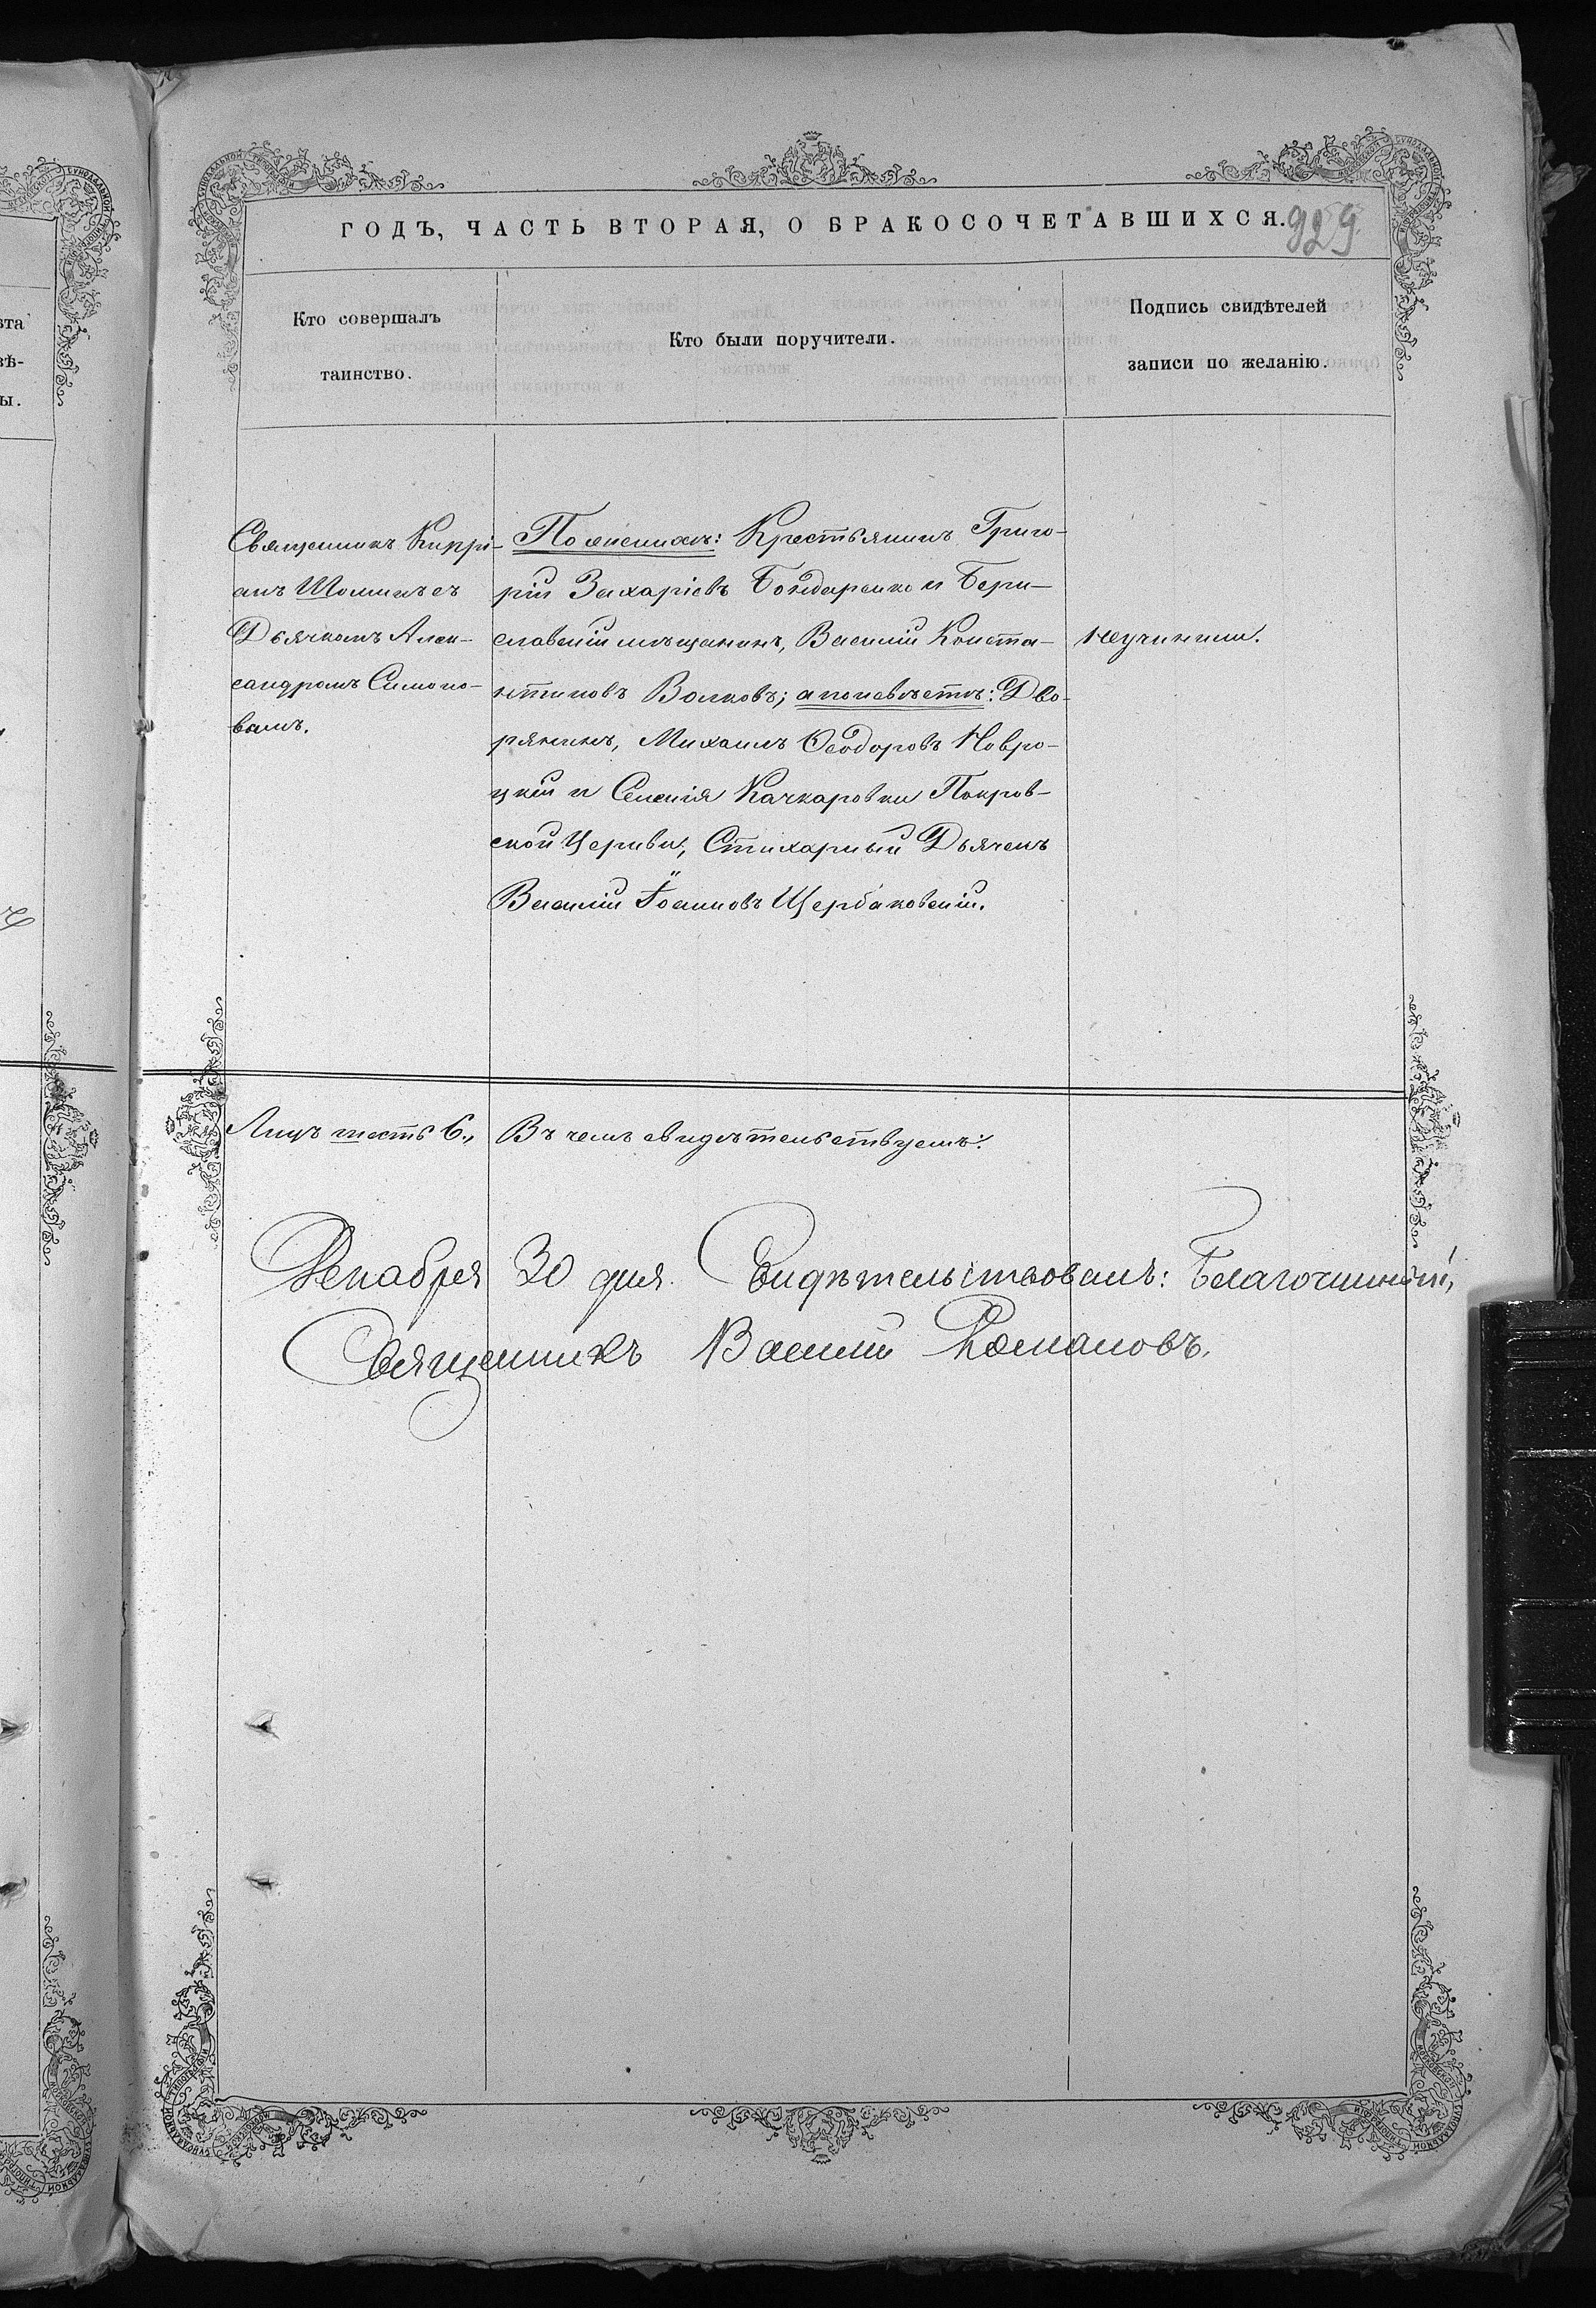 ГОДЪ, ЧАСТЬ ВТОРАЯ, О БРАКОСОЧЕТАВШИХСЯ.
929
Кто совершалъ
таинство.
Кто были поручители.
Подпись свидѣтелей
записи по желанію.
Священникъ Кипрі-
анъ съ
Дьячкомъ Алек-
сандромъ Симоно-
вымъ.
По женихѣ: Крестьянинъ Григо-
рій Захаріевъ Бондаренко и Бери-
славскій мѣщанинъ, Василій Конста-
нтиновъ Волковъ; а по невѣстѣ: Дво-
рянинъ, Михаилъ Ѳеодоровъ Навро-
цкій и Селенія Качкаровки Покров-
ской Церкви, Стихарный Дьячекъ
Василій Іоанновъ Щербаковскій.
неучинили.
Лицъ шесть 6.,
Въ чемъ свидѣтельствуемъ:
Декабря 30 дня. Свидѣтельствовалъ: Благочинный,
Священникъ Василій Романовъ.